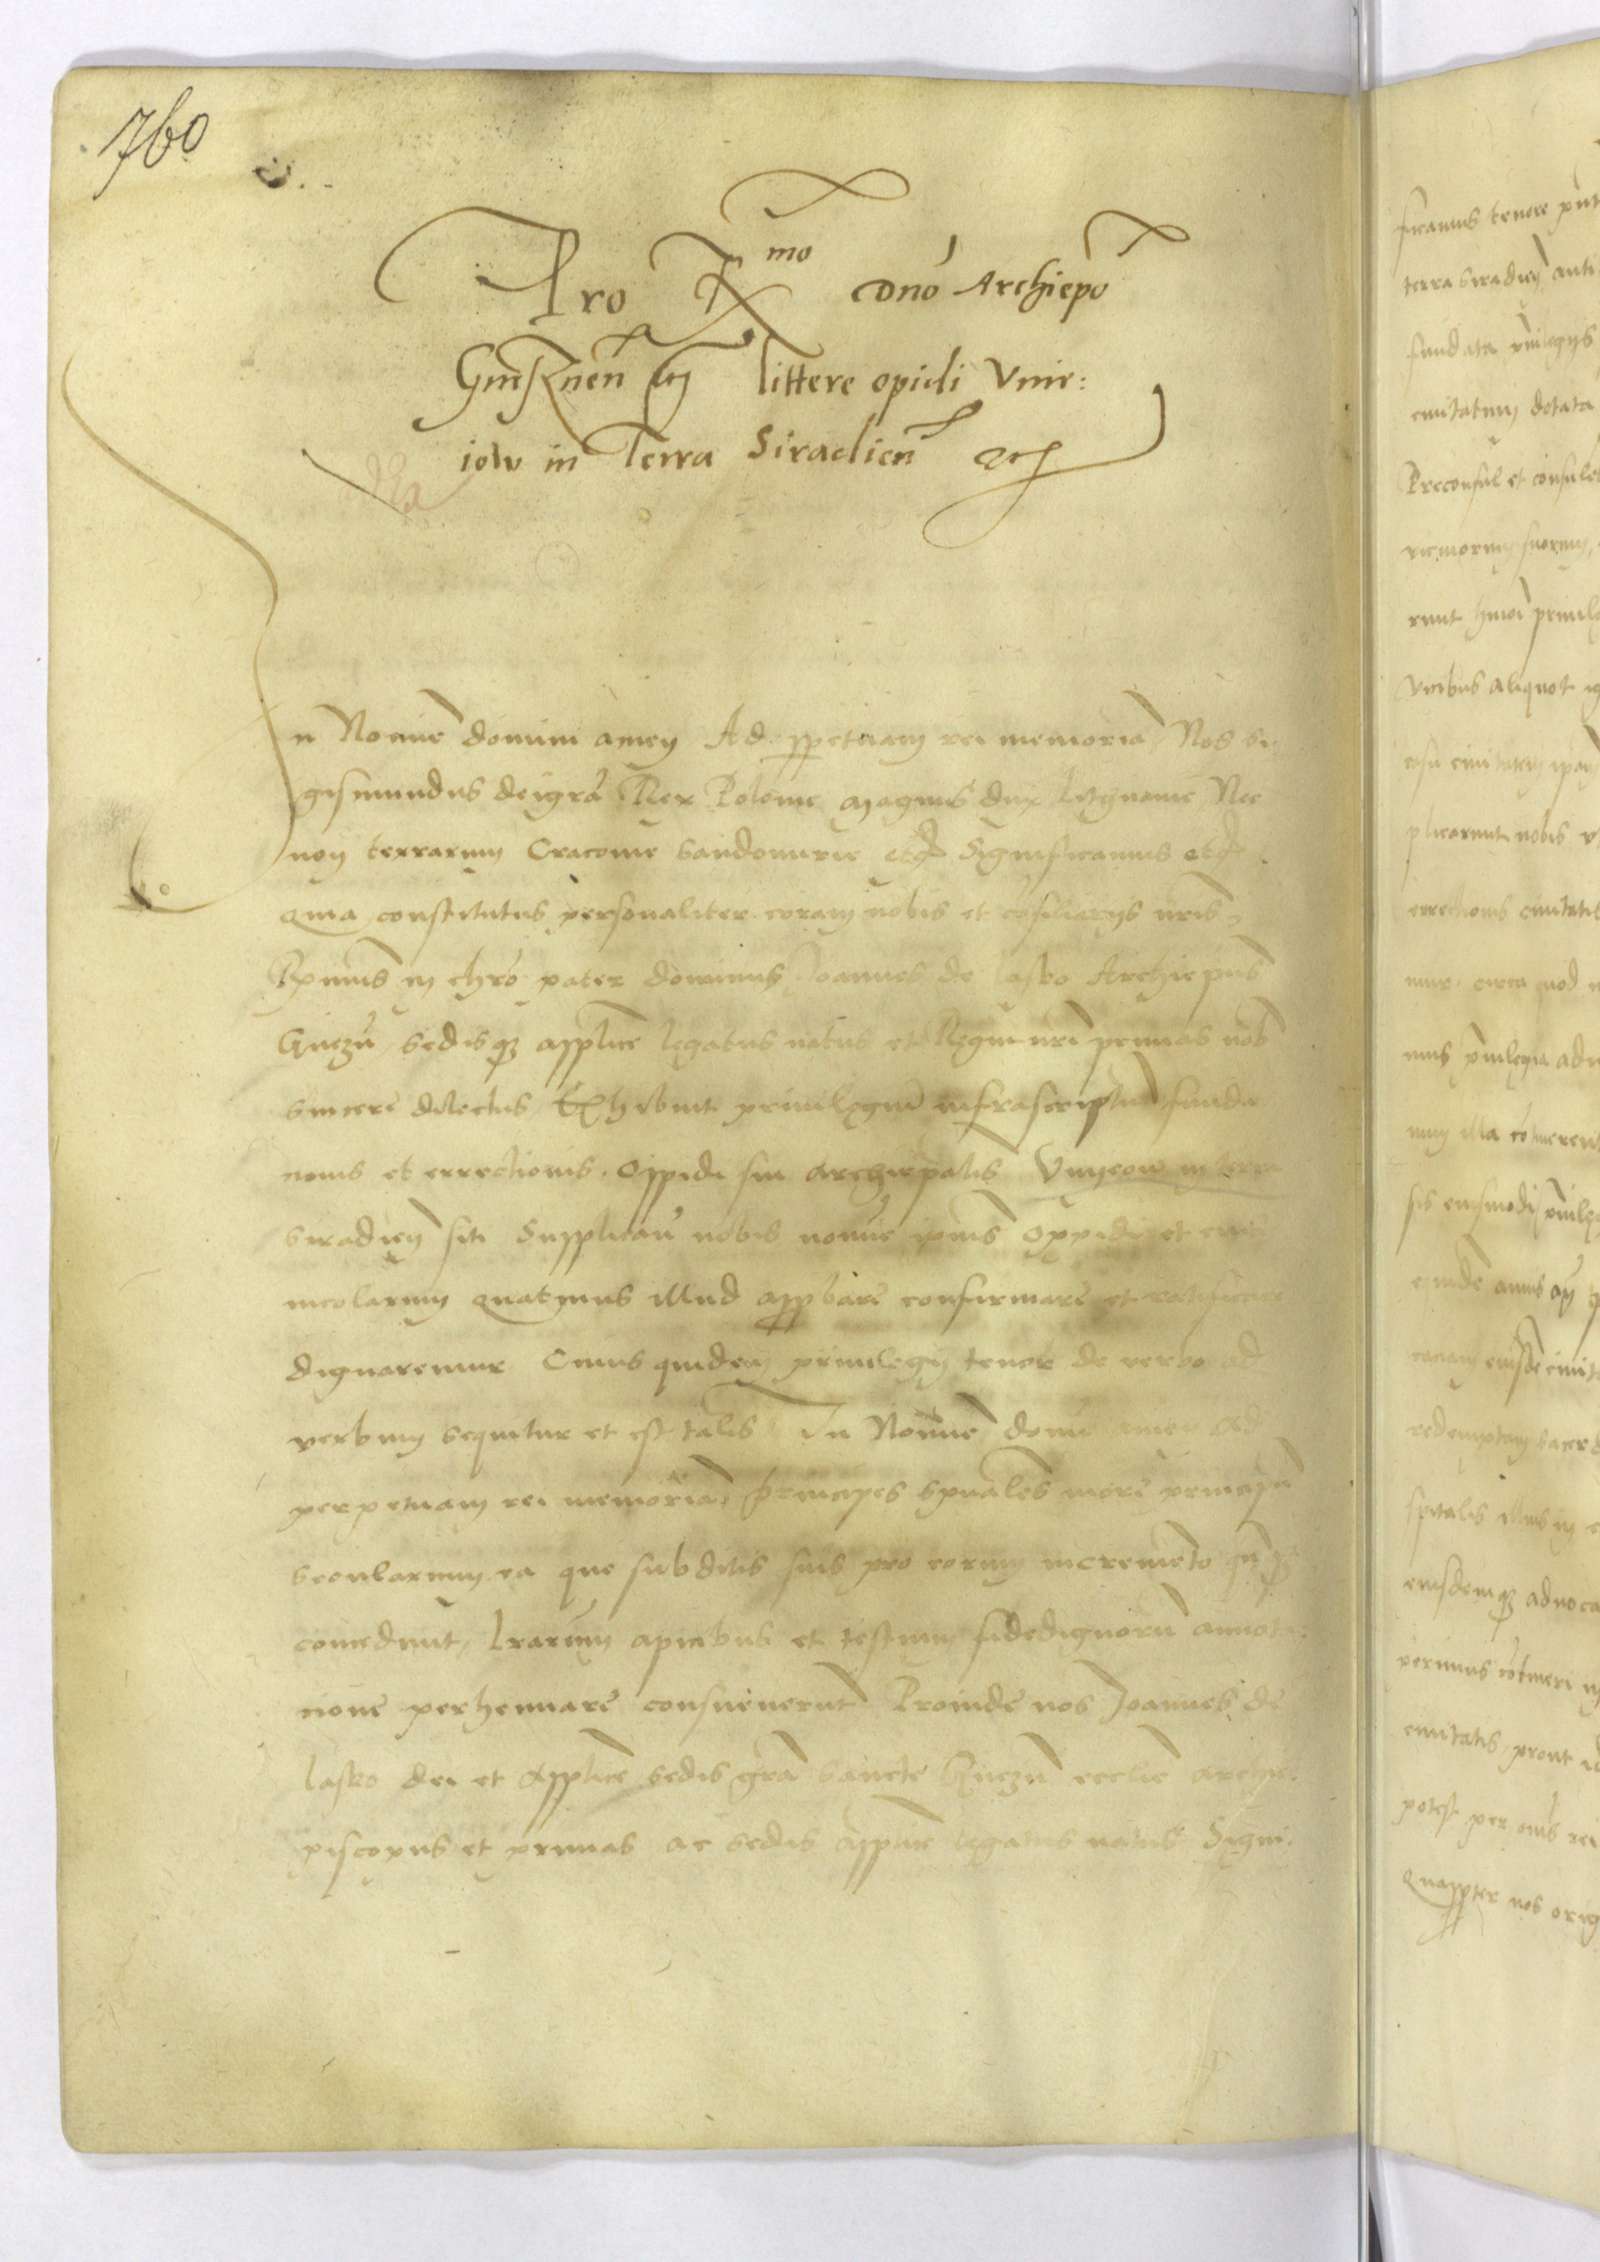 760
Pro Rmo Dno Archiepo
Gneznen etc littere opidi Vnie:
iow in Terra Siradien etc
In Nomine domini amen Ad perpetuam rei memoria Nos Si
gismundus dei gra Rex Polonie Magnus dux Lithuanie Nec
non terrarum Cracouie Sandomirie etc Significamus etc
Quia constitutus personaliter coram nobis et cosiliarijs nris
Rmus in chro pater dominus Joannes de Lasko Archiepus
Gnezn Sedisq3 applice legatus natus et Regni nri primas nob
sincere dilectus Exhibuit priuilegiu infrascriptu funda
nonis et errectionis Oppidi sui Archiepalis Vnyeow in terra
Siradien siti Supplicauit nobis nomine ipius Oppidi et eius
incolarum Quatenus illud approbare confirmare et ratificare
dignaremur Cuius quidem priuilegij tenor de verbo ad
verbum sequitur et est talis In Nomine domi amen Ad
perpetuam rei memoria Principes spuales more principu
seculariuin ea que subditis suis pro eorum incremeto
concedunt, lrarum apicibus et testium fidedignoru annota
cione perhennare consueuerunt Proinde nos Joannes de
Lasko dei et Applice sedis gra Sancte Gnezn ecclie Archie
piscopus et primas ac sedis applice legatus natus Signi
ficamus tenore
terra Siradien anti
fundata priuilegijs
ciuitatum dotata
Preconsul et consules
suorum
runt hmoi priuile
vicibus aliquot
casu ciuitatem
plicarunt nobis
errectionis ciuitatis
mur. circa quod
priuilegia
illa
eiusmodi priuileg
eiusde ciuit
redemptam
spitalis illius in
eiusdemq3 aduoca
ciuitatis, prout
potest per
Quappter nos orig